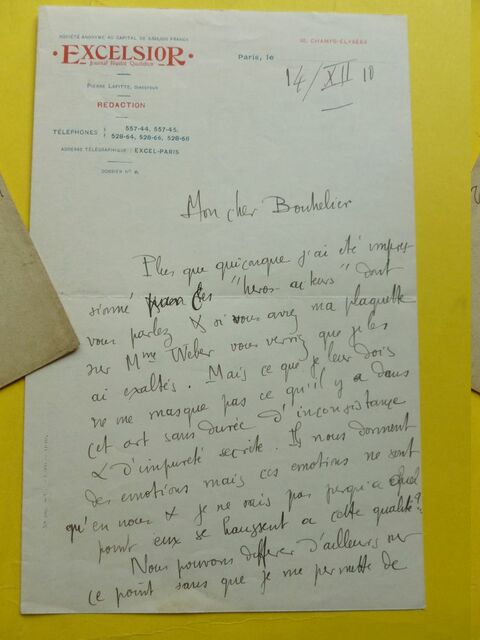 SOCIÉTÉ ANONYME AU CAPITAL DE FRANCS
• EXCELSIOR •
Journal Illustré Quotidien
PIERRE LAFITTE, DIRECTEUR
RÉDACTION
TÉLÉPHONES 557-44, 557-45,
528-64, 528-66, 528-68
ADRESSE TÉLÉGRAPHIQUE : EXCEL-PARIS
DOSSIER N°
CHAMPS-ÉLYSÉES
Paris, le
14/XII 10
Mon cher Bouhelier
Plus que quiconque j'ai été impres
sionné les "héros acteurs" dont
vous parlez & si vous avez ma plaquette
sur Mme Weber vous verrez que je les
ai exaltés. Mais ce que je leur dois
ne me masque pas ce qu'il y a dans
cet art sans durée d'inconsistance
& d'impureté secrète. Ils nous donnent
des emotions mais ces emotions ne sont
qu'en nous & je ne vois pas jusqu'à quel
point eux se haussent a cette qualité?
Nous pouvons différer d'ailleurs sur
ce point sans que je me permette de